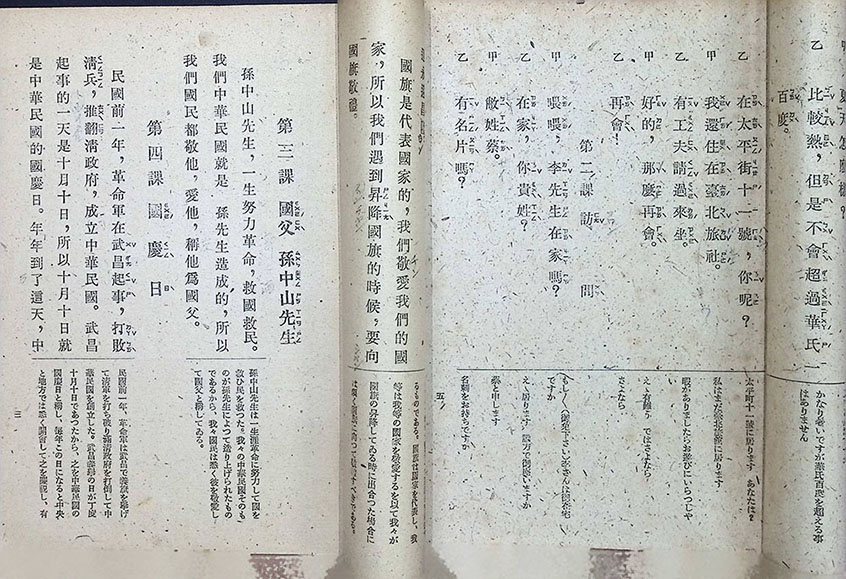 甲 夏天怎麼樣？
乙 比較熱，但是不會超過華氏一
百度。
乙 在太平街十一號，你呢？
甲 我還住在臺北旅社。
乙 有工夫請過來坐。
甲 好的，那麼再會。
乙 再會！
第二課 訪 問
甲 喂喂，李先生在家嗎？
乙 在家，你貴姓？
甲 敝姓蔡。
乙 有名片嗎？
かなり暑いですが華氏百度を超える事
はありません
太平町十一號に居ります あなたは？
私はまだ臺北旅館に居ります
暇がありましたらお遊びにいらつしや
い
えゝ有難う ではさよなら
さよなら
もし／＼（御免下さい）李さんは御在宅
ですか
えゝ居ります 貴方で御座いますか
蔡と申します
名刺をお持ちですか
五
國旗是代表國家的，我們敬愛我們的國
家，所以我們遇到昇降國旗的時候，要向
國旗敬禮。
るものである。國旗は國家を代表し、我
等は我等の國家を敬愛するを以て我々が
國旗の昇降してゐる時に出合つた場合に
第三課 國父 孫中山先生
孫中山先生，一生努力革命，救國救民。
我們中華民國就是 孫先生造成的，所以
我們國民都敬他，愛他，稱他爲國父。
第四課 國慶日
民國前一年，革命軍在武昌起事，打敗
淸兵，推翻淸政府，成立中華民國。武昌
起事的一天是十月十日，所以十月十日就
是中華民國的國慶日。年年到了這天，中
孫中山先生は一生涯革命に努力して國を
救ひ民を救つた。我々の中華民國そのも
のが孫先生によつて造り上げられたもの
であるから、我々國民は悉く彼を敬愛し
て國父と稱してゐる。
民國前一年、革命軍は武昌で義旗を擧げ
て淸軍を打ち破り滿淸政府を打倒して中
華民國を創立した。武昌義擧の日が丁度
十月十日であつたから、之を中華民國の
國慶日と稱し、每年この日になると中央
と地方では悉く開會して之を慶祝し、有
三